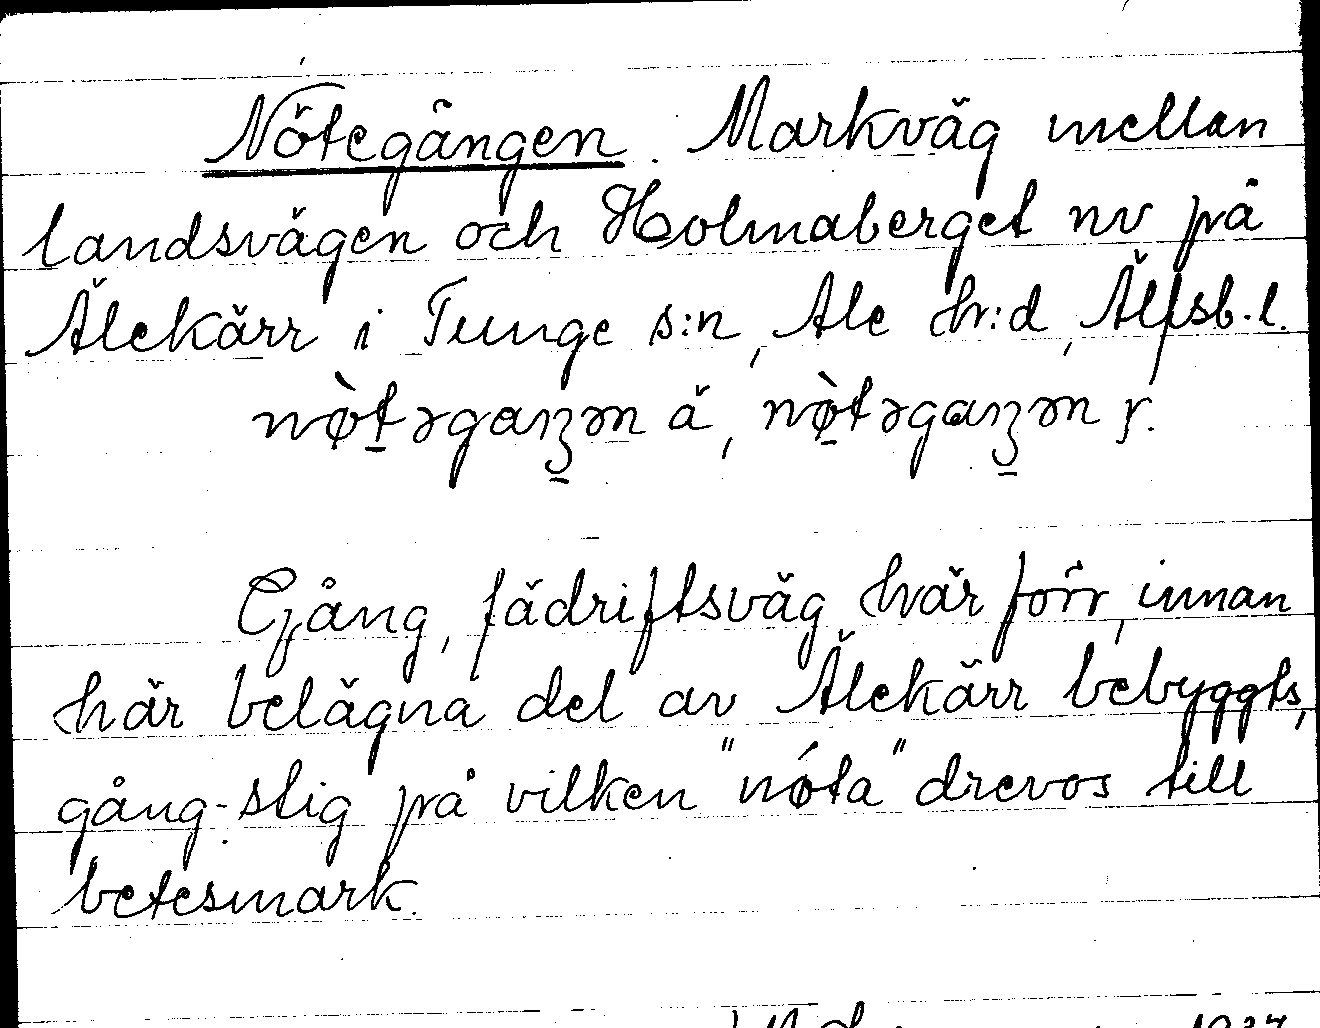 Nötegången. Markväg mellan
landsvägen och Holmaberget nv på
Älekärr i Tunge s:n, Ale h:d, Älfsb.l.
nø̀təgaŋən å, nø̀təgaŋən y.
Gång, fädriftsväg här förr, innan
här belägna del av Älekärr bebyggts,
gång-stig på vilken "nǿta" drevos till
betesmark.
1937